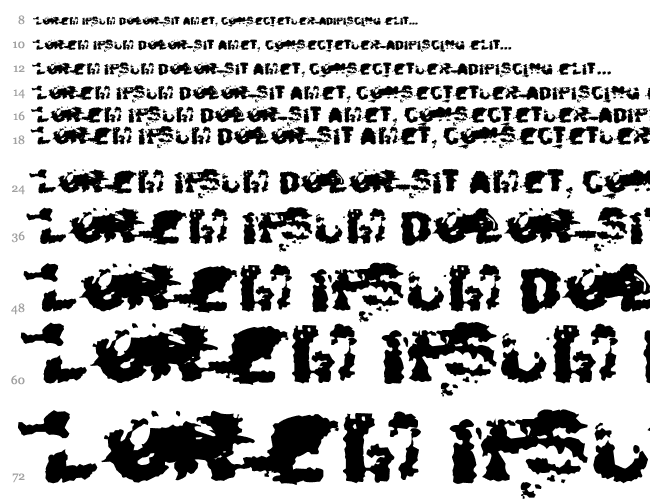 8 LOREM IPSUM DOLOR SIT AMET, CONSECTETUER ADIPISCING ELIT...
10 LOREM IPSUM DOLOR SIT AMET, CONSECTETUER ADIPISCING ELIT...
12 LOREM IPSUM DOLOR SIT AMET, CONSECTETUER ADIPISCING ELIT...
14 LOREM IPSUM DOLOR SIT AMET, CONSECTETUER ADIPISCING E
16 LOREM IPSUM DOLOR SIT AMET, CONSECTETUER ADIP
18 LOREM IPSUM DOLOR SIT AMET, CONSECTETUER
24 LOREM IPSUM DOLOR SIT AMET, CON
36 LOREM IPSUM DOLOR SI
48 LOREM IPSUM DOL
60 LOREM IPSUM
72 LOREM IPSU